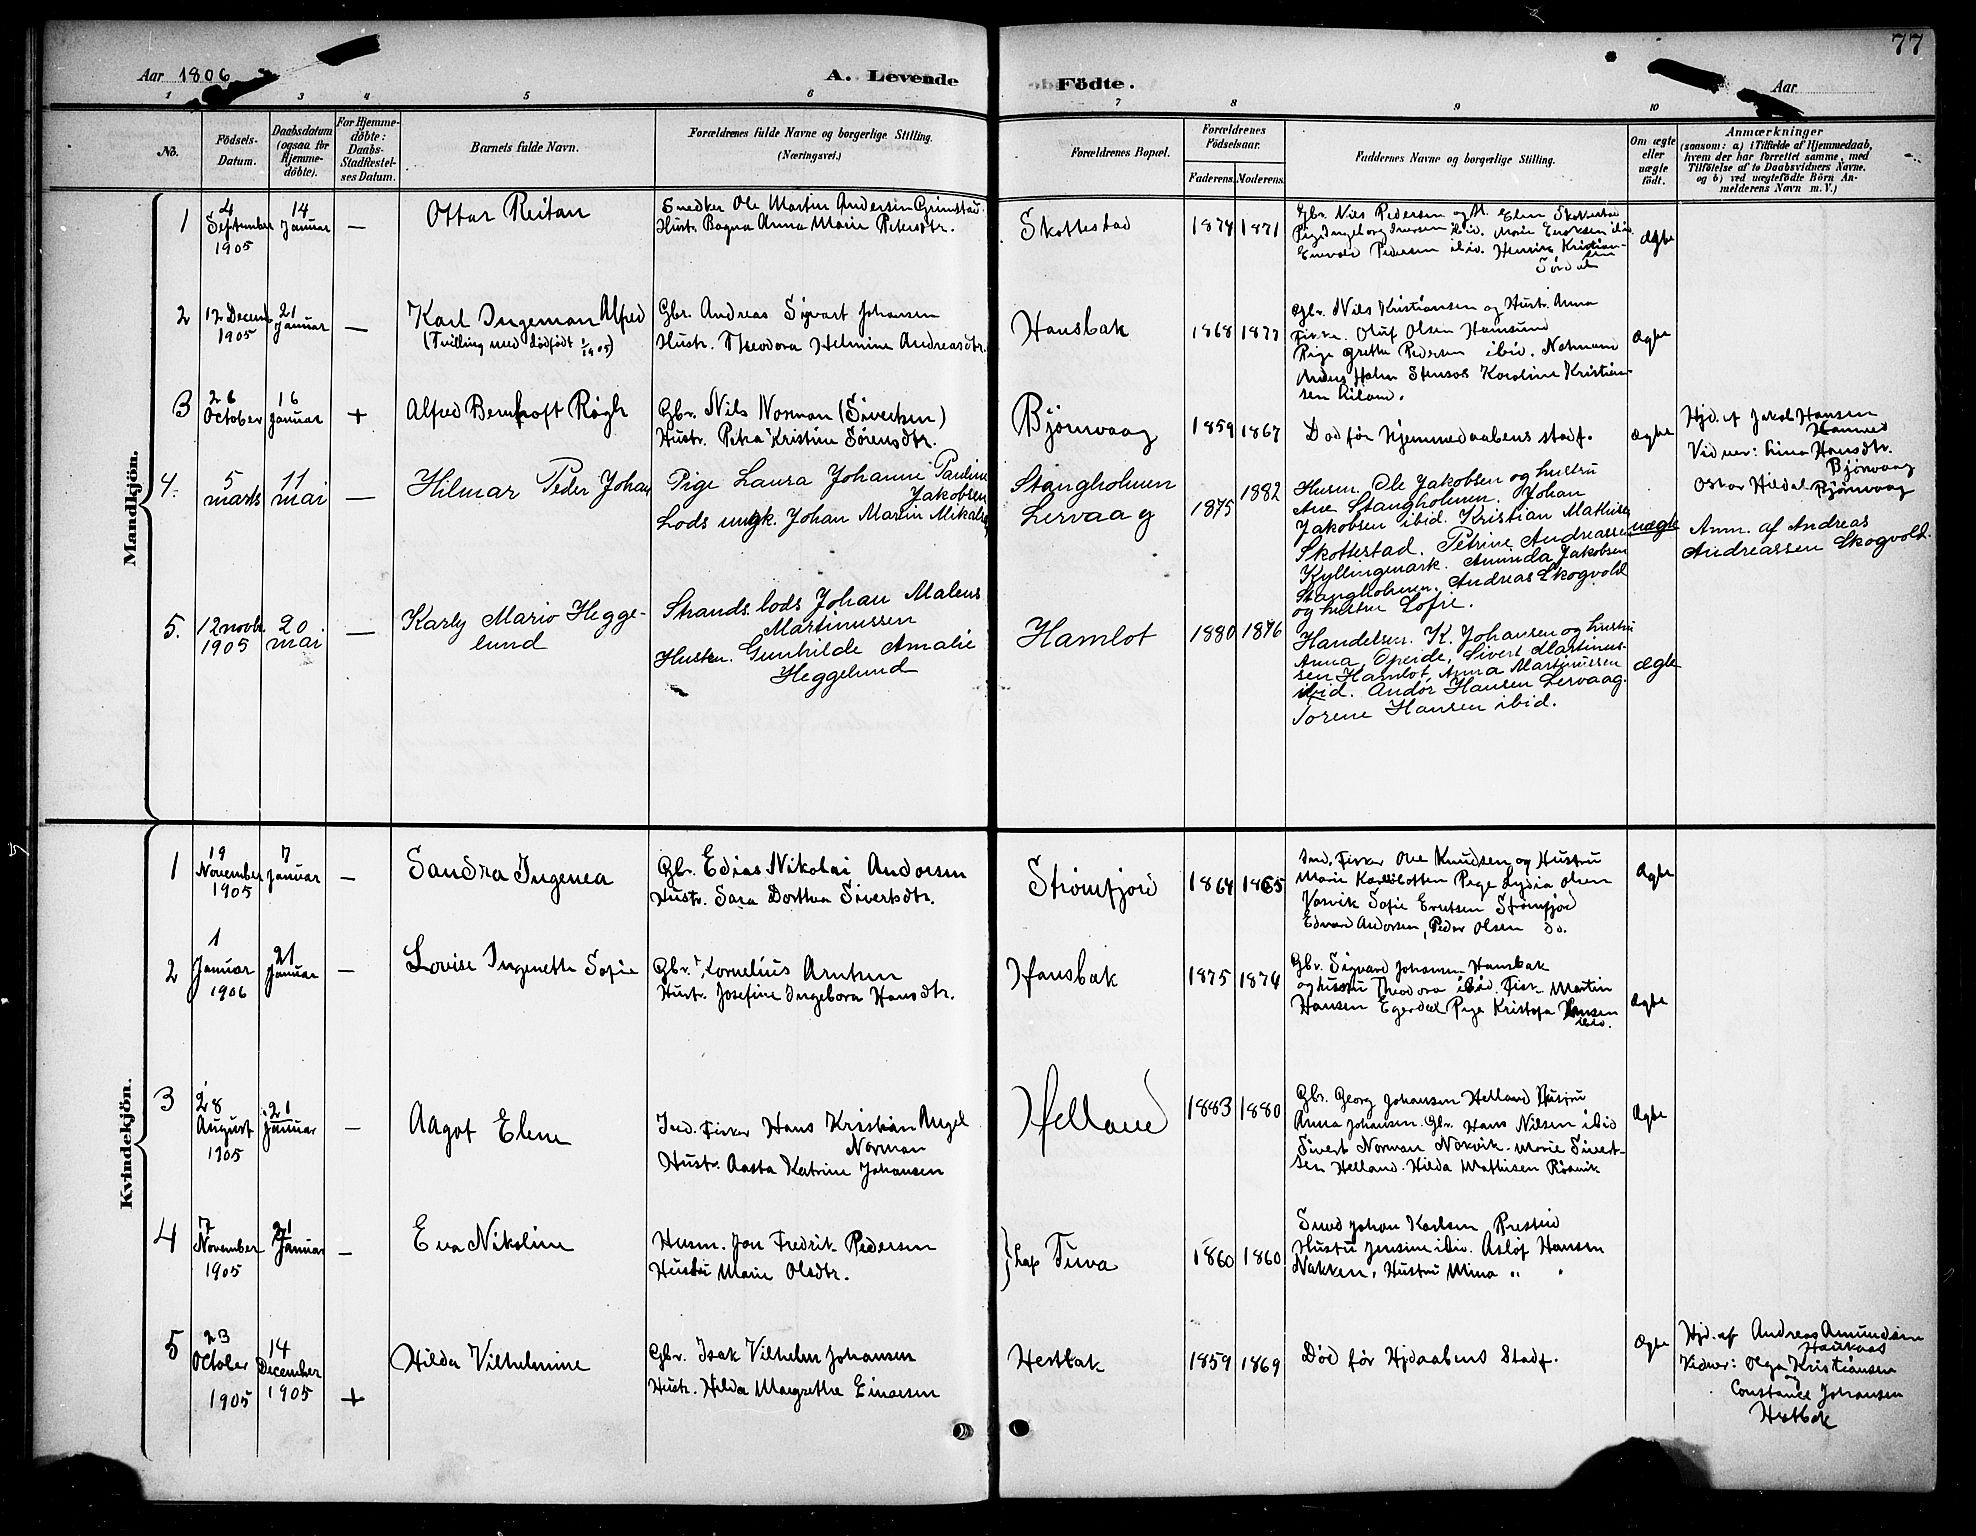 77
Aar 1806
A. Levende
Födte.
Aar
1 3 4 5 6 7 8 9 10
No.
Födsels-
Datum.
Daabsdatum
(ogsaa for
Hjemme-
döbte).
For Hjemme-
döbte:
Daabs-
Stadfestel-
ses Datum.
Barnets fulde Navn.
Forældrenes fulde Navne og borgerlige Stilling.
(Næringsvei.)
Forældrenes Bopæl.
Forældrenes
Födselsaar.
Faderens. Moderens.
Faddernes Navne og borgerlige Stilling.
Om ægte
eller
uægte
födt.
Anmærkninger
(saasom: a) i Tilfælde af Hjemmedaab,
hvem der har forrettet samme, med
Tilföielse af to Daabsvidners Navne.
og b) ved uægtefödte Börn An-
melderens Navn m. V.)
Mandkjön.
1
4
September
1905
14
Januar
—
Ottar Reitan
Snedker Ole Martin Andersen Grimstad.
Hustr. Ragna Anna Marie Petersdtr.
Skottestad
1874 1871
Gbr. Nils Pedersen og H. Elen Skottestad
Pige Ingeborg Iversen ibid. Marie Eriksen ibid.
Pedersen ibid. Henrik Kristian-
sen
ægte
2
12 Decemb
1905
21
Januar
—
Karl Ingeman Alfred
(Tvilling med dödfödt 1/1905)
Gbr. Andreas Sigvart Johansen
Hustr. Theodora Helmine Andreasdtr.
Hansbak
1868 1877
Gbr. Nils Kristiansen og Hustr. Anna
Fisker Oluf Olsen Hamsund
Pige Grethe Pedersen ibid.
Karoline Kristian-
sen
ægte
3
26
October
16
Januar
+
Alfred Bernhoft Rögh
Gbr. Nils Norman (Sivertsen)
Hustr. Petra Kristine Sörensdtr.
Björnvaag
1859 1867
Död för hjemmedaabens stadf.
ægte
Hjd. af Jakob Hansen
Vidner: Lina Hansdtr.
Björnvaag
Oskar Hildal Björnvaag
4.
5
marts
11
mai
—
Hilmar Peder Johan
Pige Laura Johanne Pauline
Jakobsen
Lods ungk. Johan Martin Mikalsen
Stangholmen
Lervaag
1875 1882
Husm. Ole Jakobsen og hustru
Ane Stangholmen. Johan
Jakobsen ibid. Kristian Mathisen
Skottestad. Petrine Andreassen
Kyllingmark. Aminda Jakobsen
Stangholmen. Andreas Skogvold
og hustru Lofie.
uægte
Anm. af Andreas
Andreassen Skogvold.
5.
12 novbr.
1905
20
mai
—
Karly Mario Hegge-
lund
Strands. lods Johan Maleus
Martinussen
Hustru. Gunhilde Amalie
Heggelund
Hamlot
1880 1876
Handelsm. K. Johansen og hustru
Anna, Operde, Sivert Martinus-
sen Hamlot, Anna Martinussen
ibid. Andor Hansen Lervaag.
Torene Hansen ibid.
ægte
Kvindekjön.
1
19
November
1905
7
Januar
—
Sandra Ingenea
Gbr. Edias Nikolai Andorsen
Hustr. Sara Dorthea Sivertsdtr.
Strömfjord
1864 1865
Ind. Fisker Ole Knudsen og Hustru
Marie Pige Lydia Olsen
Vasvik Sofie Strömfjord
Edvard Andorsen, Peder Olsen do.
ægte
2
1
Januar
1906
21
Januar
—
Lovise Ingenette Sofie
Gbr. Kornelius Arntsen
Hustr. Josefine Ingeborg Hansdtr.
Hansbak
1875 1874
Gbr. Sigvard Johansen Hansbak
og hustru Theodora ibid. Fisk. Martin
Hansen Egerdal Pige Kristofa Hansen
ibid.
ægte
3
28
August
1905
21
Januar
—
Aagot Elene
Ind. Fisker Hans Kristian Angel
Norman
Hustr. Aasta Katrine Johansen
Helland
1883 1880
Gbr. Georg Johansen Helland Hustru
Anna Johansen. Gbr. Hans Nilsen ibid
Sivert Norman Nordvik. Marie Sivert-
sen Helland. Hilda Mathisen Rösvik
ægte
4
7
November
1905
21
Januar
—
Eva Nikoline
Husm. Jon Fredrik Pedersen
Hustru Marie Olsdtr.
} Lap Tuva
1860 1860
Smed Johan Karlsen Presteid
Hustru Jensine ibid. Asløf Hansen
Nakken, Hustru Mina " "
5
23
October
1905
14
December
1905
+
Hilda Vilhelmine
Gbr. Isak Vilhelm Johansen
Hustr. Hilda Margrethe Einarsen
Hestbak
1859 1869
Död för Hjdaabens Stadf.
ægte
Hjd. af Andreas Amundsen
Vidner: Olga Kristiansen
og
Constance Johansen
Hestbak